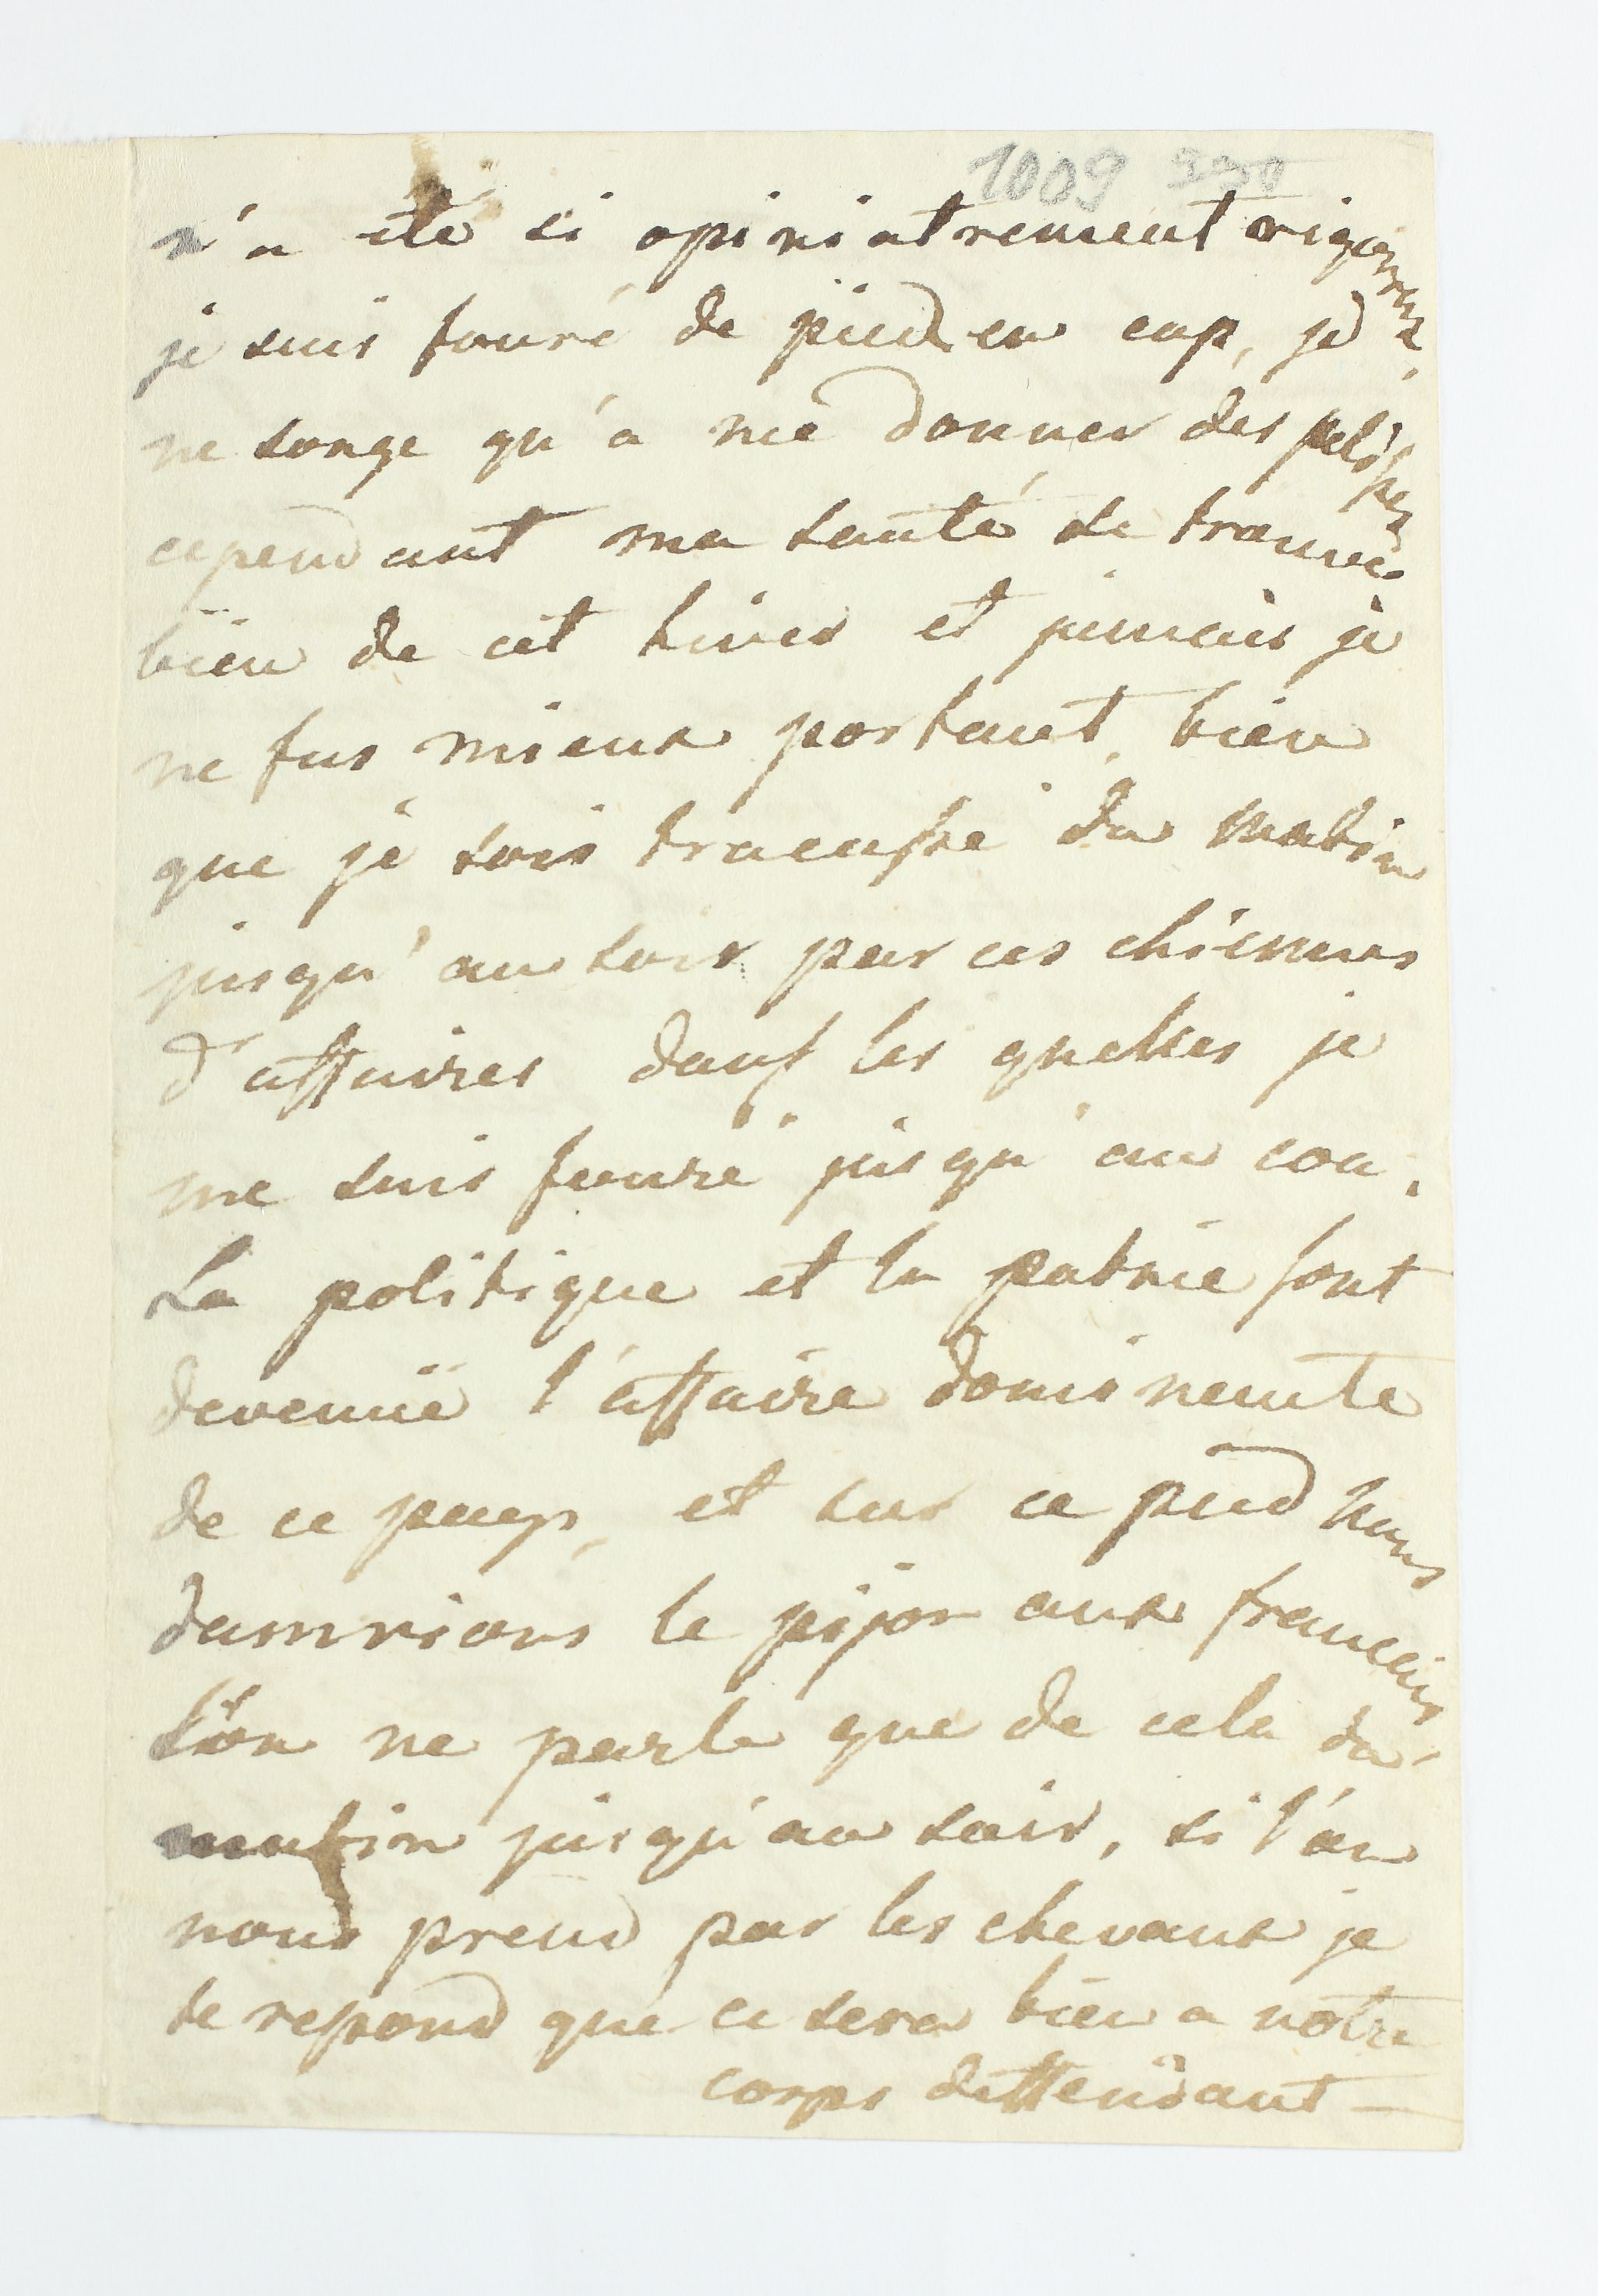 1009
n'a eté si opiniatrement rigoureux,
je suis fouré de pied en cap, je
ne songe qu'a me donner des pelisses
cependant ma santé se trouve
bien de cet hiver et jamais je
ne fus mieux portant, bien
que je sois tracassé du matin
jusqu'au soir par ces chiennes
d'affaires dans les quelles je
me suis fouré jusqu'au cou.
La politique et la patrie sont
devenue l'affaire dominente
de ce pays, et sur ce pied nous
damrions le pijon aux francais
l'on ne parle que de cela du
matin jusqu'au soir, si l'on
nous prend par les chevaux je
te repond que ce sera bien a notre
corps deffendant —